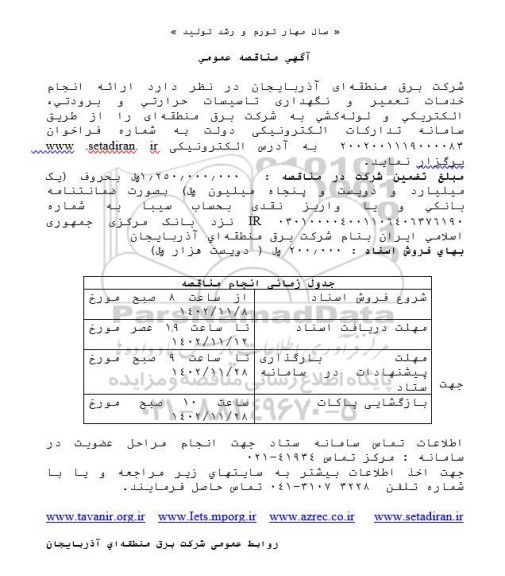 « سال مهار تورم و رشد تولید »
آگهي مناقصه عمومي
شرکت برق منطقه‌ای آذربایجان در نظر دارد ارائه انجام
خدمات تعمیر و نگهداری تاسیسات حرارتي و برودتي،
الکتریکي و لوله‌کشي به شرکت برق منطقه‌ای را از طریق
سامانه تدارکات الکترونیکی دولت به شماره فراخوان
۲۰۰۲۰۰۱۱۱۹۰۰۰۰۸۳ به آدرس الکترونیکی www .setadiran. ir
برگزار نمایند.
مبلغ تضمین شرکت در مناقصه : ۱٫۲۵۰٫۰۰۰٫۰۰۰ریال بحروف (یک
میلیارد و دویست و پنجاه میلیون ریال) بصورت ضمانتنامه
بانکي و یا واریز نقدی بحساب سیبا به شماره
IR ۰۳۰۱۰۰۰۰۴۰۰۱۱۰۶۴۰۶۳۷۶۱۹۰ نزد بانک مرکزی جمهوری
اسلامي ایران بنام شرکت برق منطقه‌اي آذربایجان
بهاي فروش اسناد : ۲۰۰٫۰۰۰ ریال ( دویست هزار ریال)
جدول زمانی انجام مناقصه
شروع فروش اسناد از ساعت ۸ صبح مورخ
۱۴۰۲/۱۱/۸
مهلت دریافت اسناد تا ساعت ۱۹ عصر مورخ
۱۴۰۲/۱۱/۱۲
مهلت بارگذاری تا ساعت ۹ صبح مورخ
پیشنهادات در سامانه ۱۴۰۲/۱۱/۲۸
ستاد
جهت
بازگشایی پاکات ساعت ۱۰ صبح مورخ
۱۴۰۲/۱۱/۲۸
اطلاعات تماس سامانه ستاد جهت انجام مراحل عضویت در
سامانه : مرکز تماس ۴۱۹۳۴-۰۲۱
جهت اخذ اطلاعات بیشتر به سایتهاي زیر مراجعه و یا با
شماره تلفن ۳۲۲۸ ۳۱۰۷-۰۴۱ تماس حاصل فرمایند.
www.tavanir.org.ir www.Iets.mporg.ir www.azrec.co.ir www.setadiran.ir
روابط عمومي شرکت برق منطقه‌اي آذربایجان
ParsNamadData
پایگاه اطلاع رسانی مناقصه و مزایده
۰۲۱-۸۸۳۴۹۶۷۰-۵